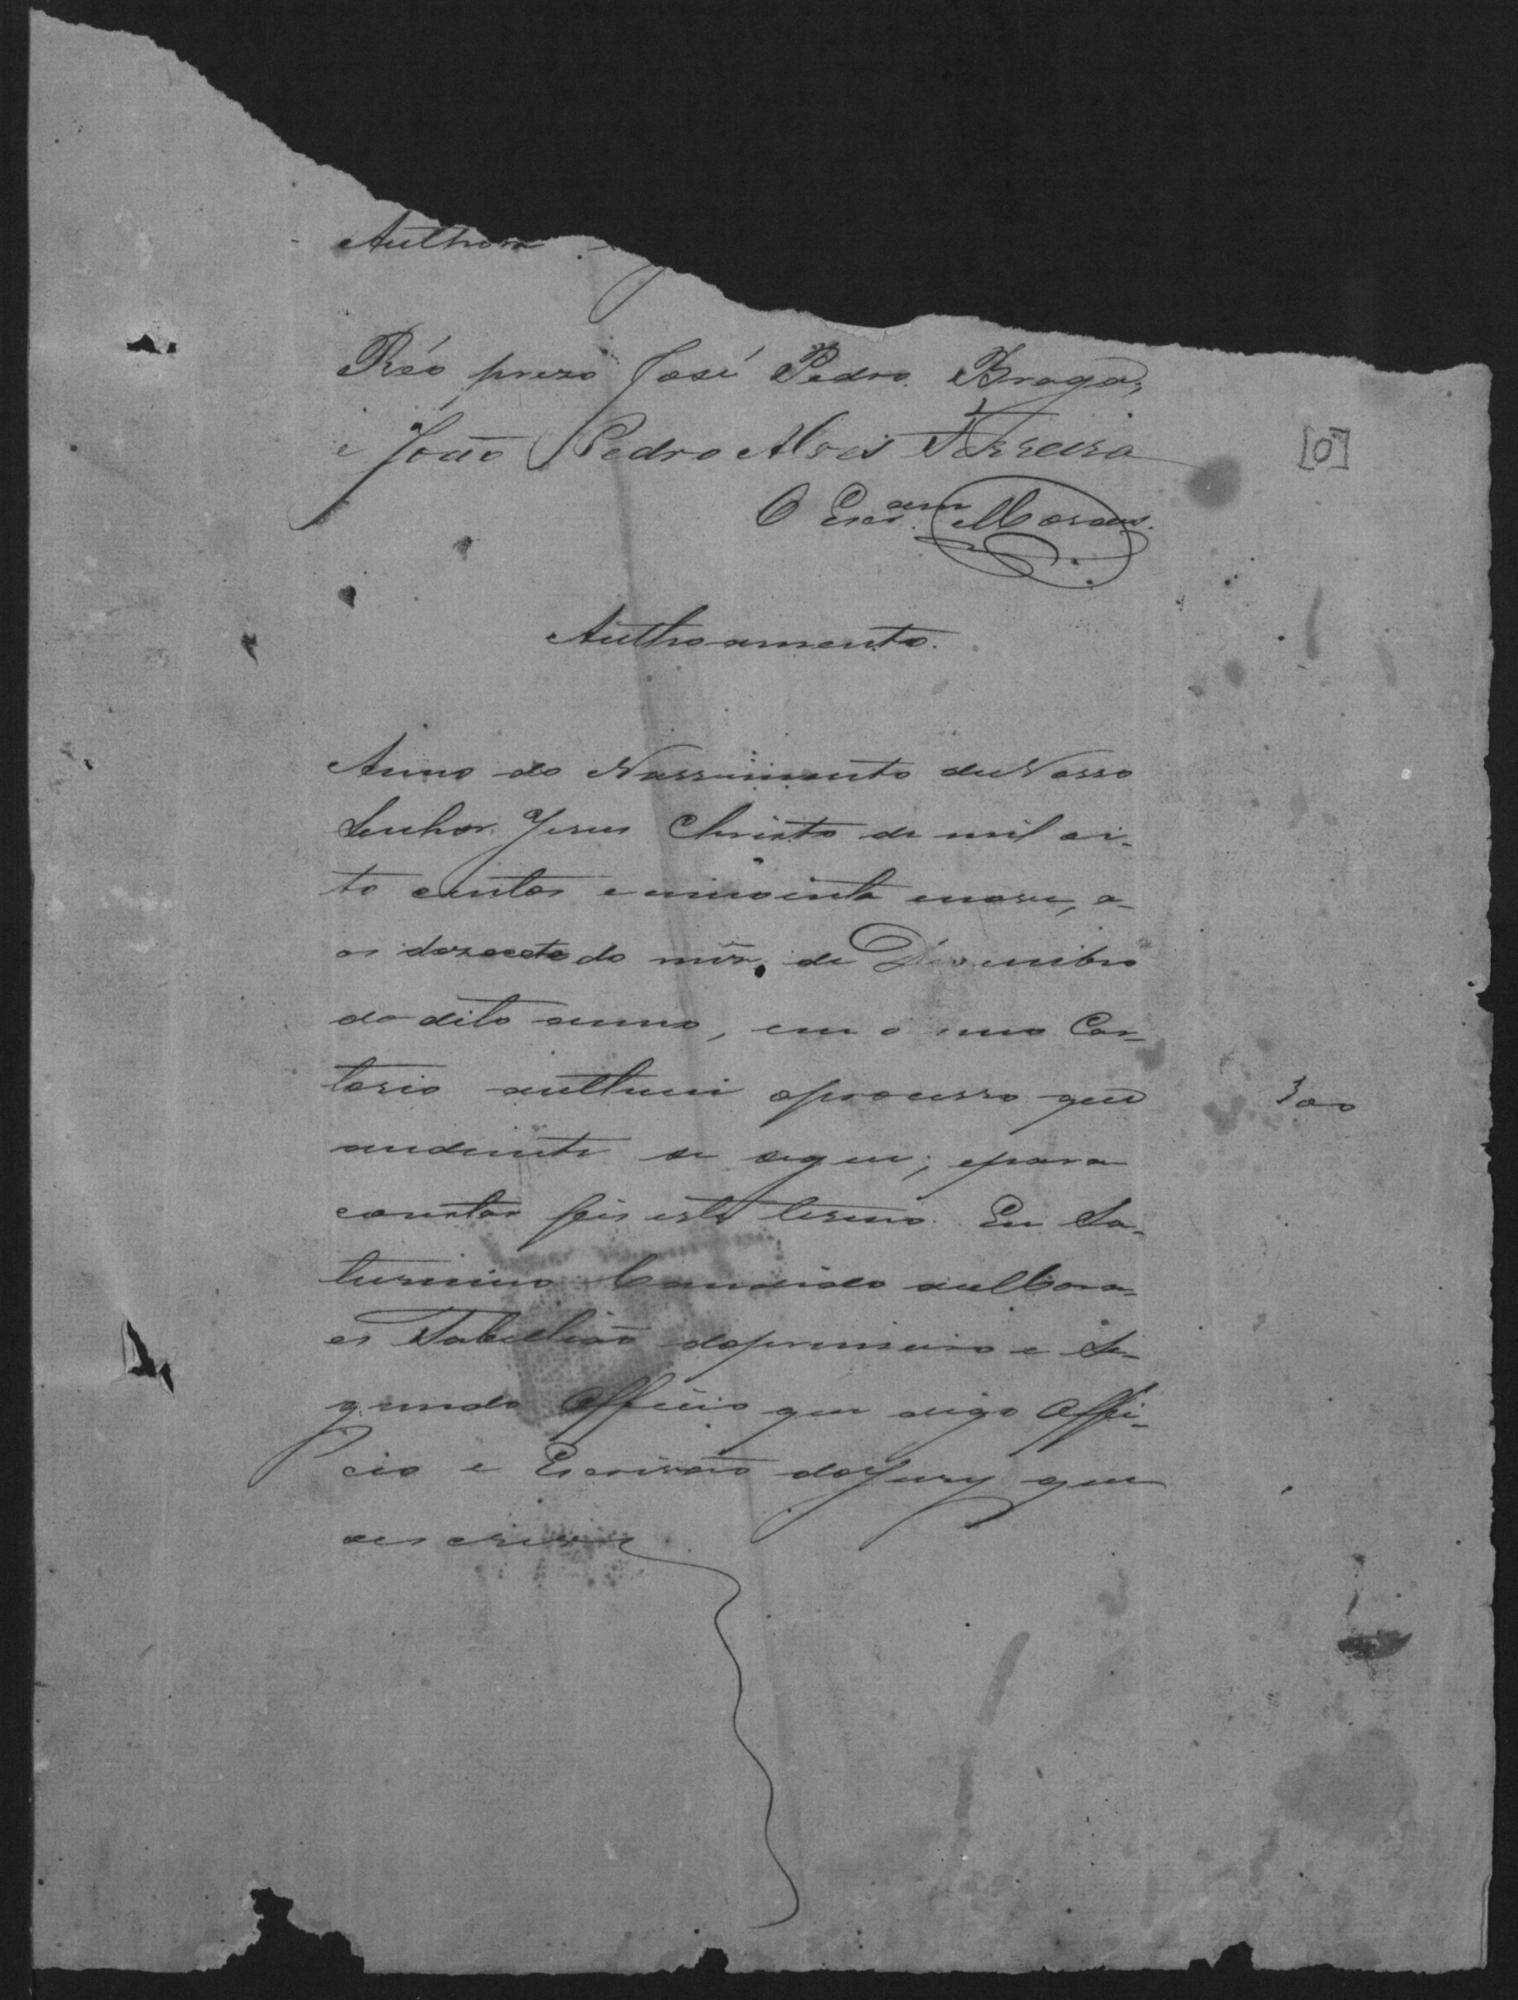 Author
Réo prezo José Pedro Braga,
e João Pedro Alves Ferreira
[0]
O Escr.am Moraes.
Authoamento.
Anno do Nassimento de Nosso
Senhor Jesus Christo de mil oi-
to centos e cincoenta enove, a-
os dezecete do mez de Dezembro
do dito anno, em o meo Car-
torio authuei oprocesso que
andiente se segue; epara
constar fis este termo. Eu Sa-
turnino Candido de Mora-
es Tabellião doprimeiro e Se-
gundo Officio que digo Offi-
cio e Escrivão do Jury que
o escrevi
300